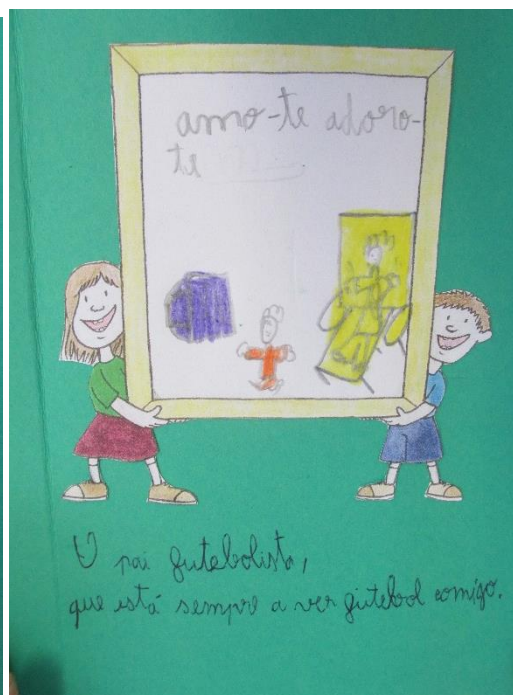 amo-te adoro-
te
O pai futebolista,
que está sempre a ver futebol comigo.